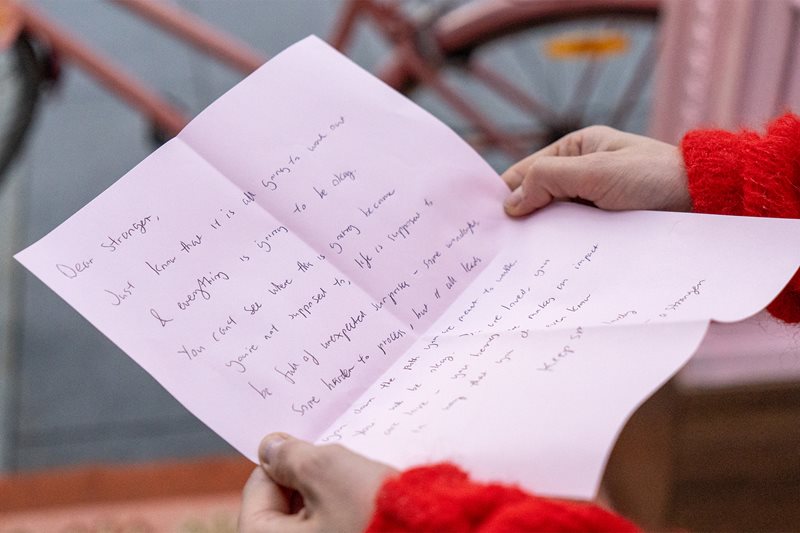 Dear Stranger,
Just know that it is all going to work out
& everything is going to be okay.
You can't see where this is going because
you're not supposed to, life is supposed to
be full of unexpected surprises - some wonderful
some harder to process, but it all leads
you down the path you're meant to walk.
You will be okay. You are loved, you
are love - you being here makes an impact
in ways that you don't even know
Keep
- a stranger